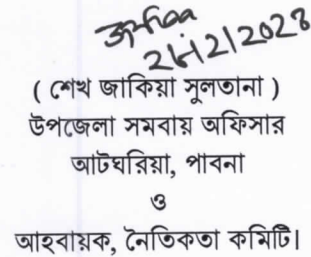 ( শেখ জাকিয়া সুলতানা )
উপজেলা সমবায় অফিসার
আটঘরিয়া, পাবনা
ও
আহবায়ক, নৈতিকতা কমিটি।